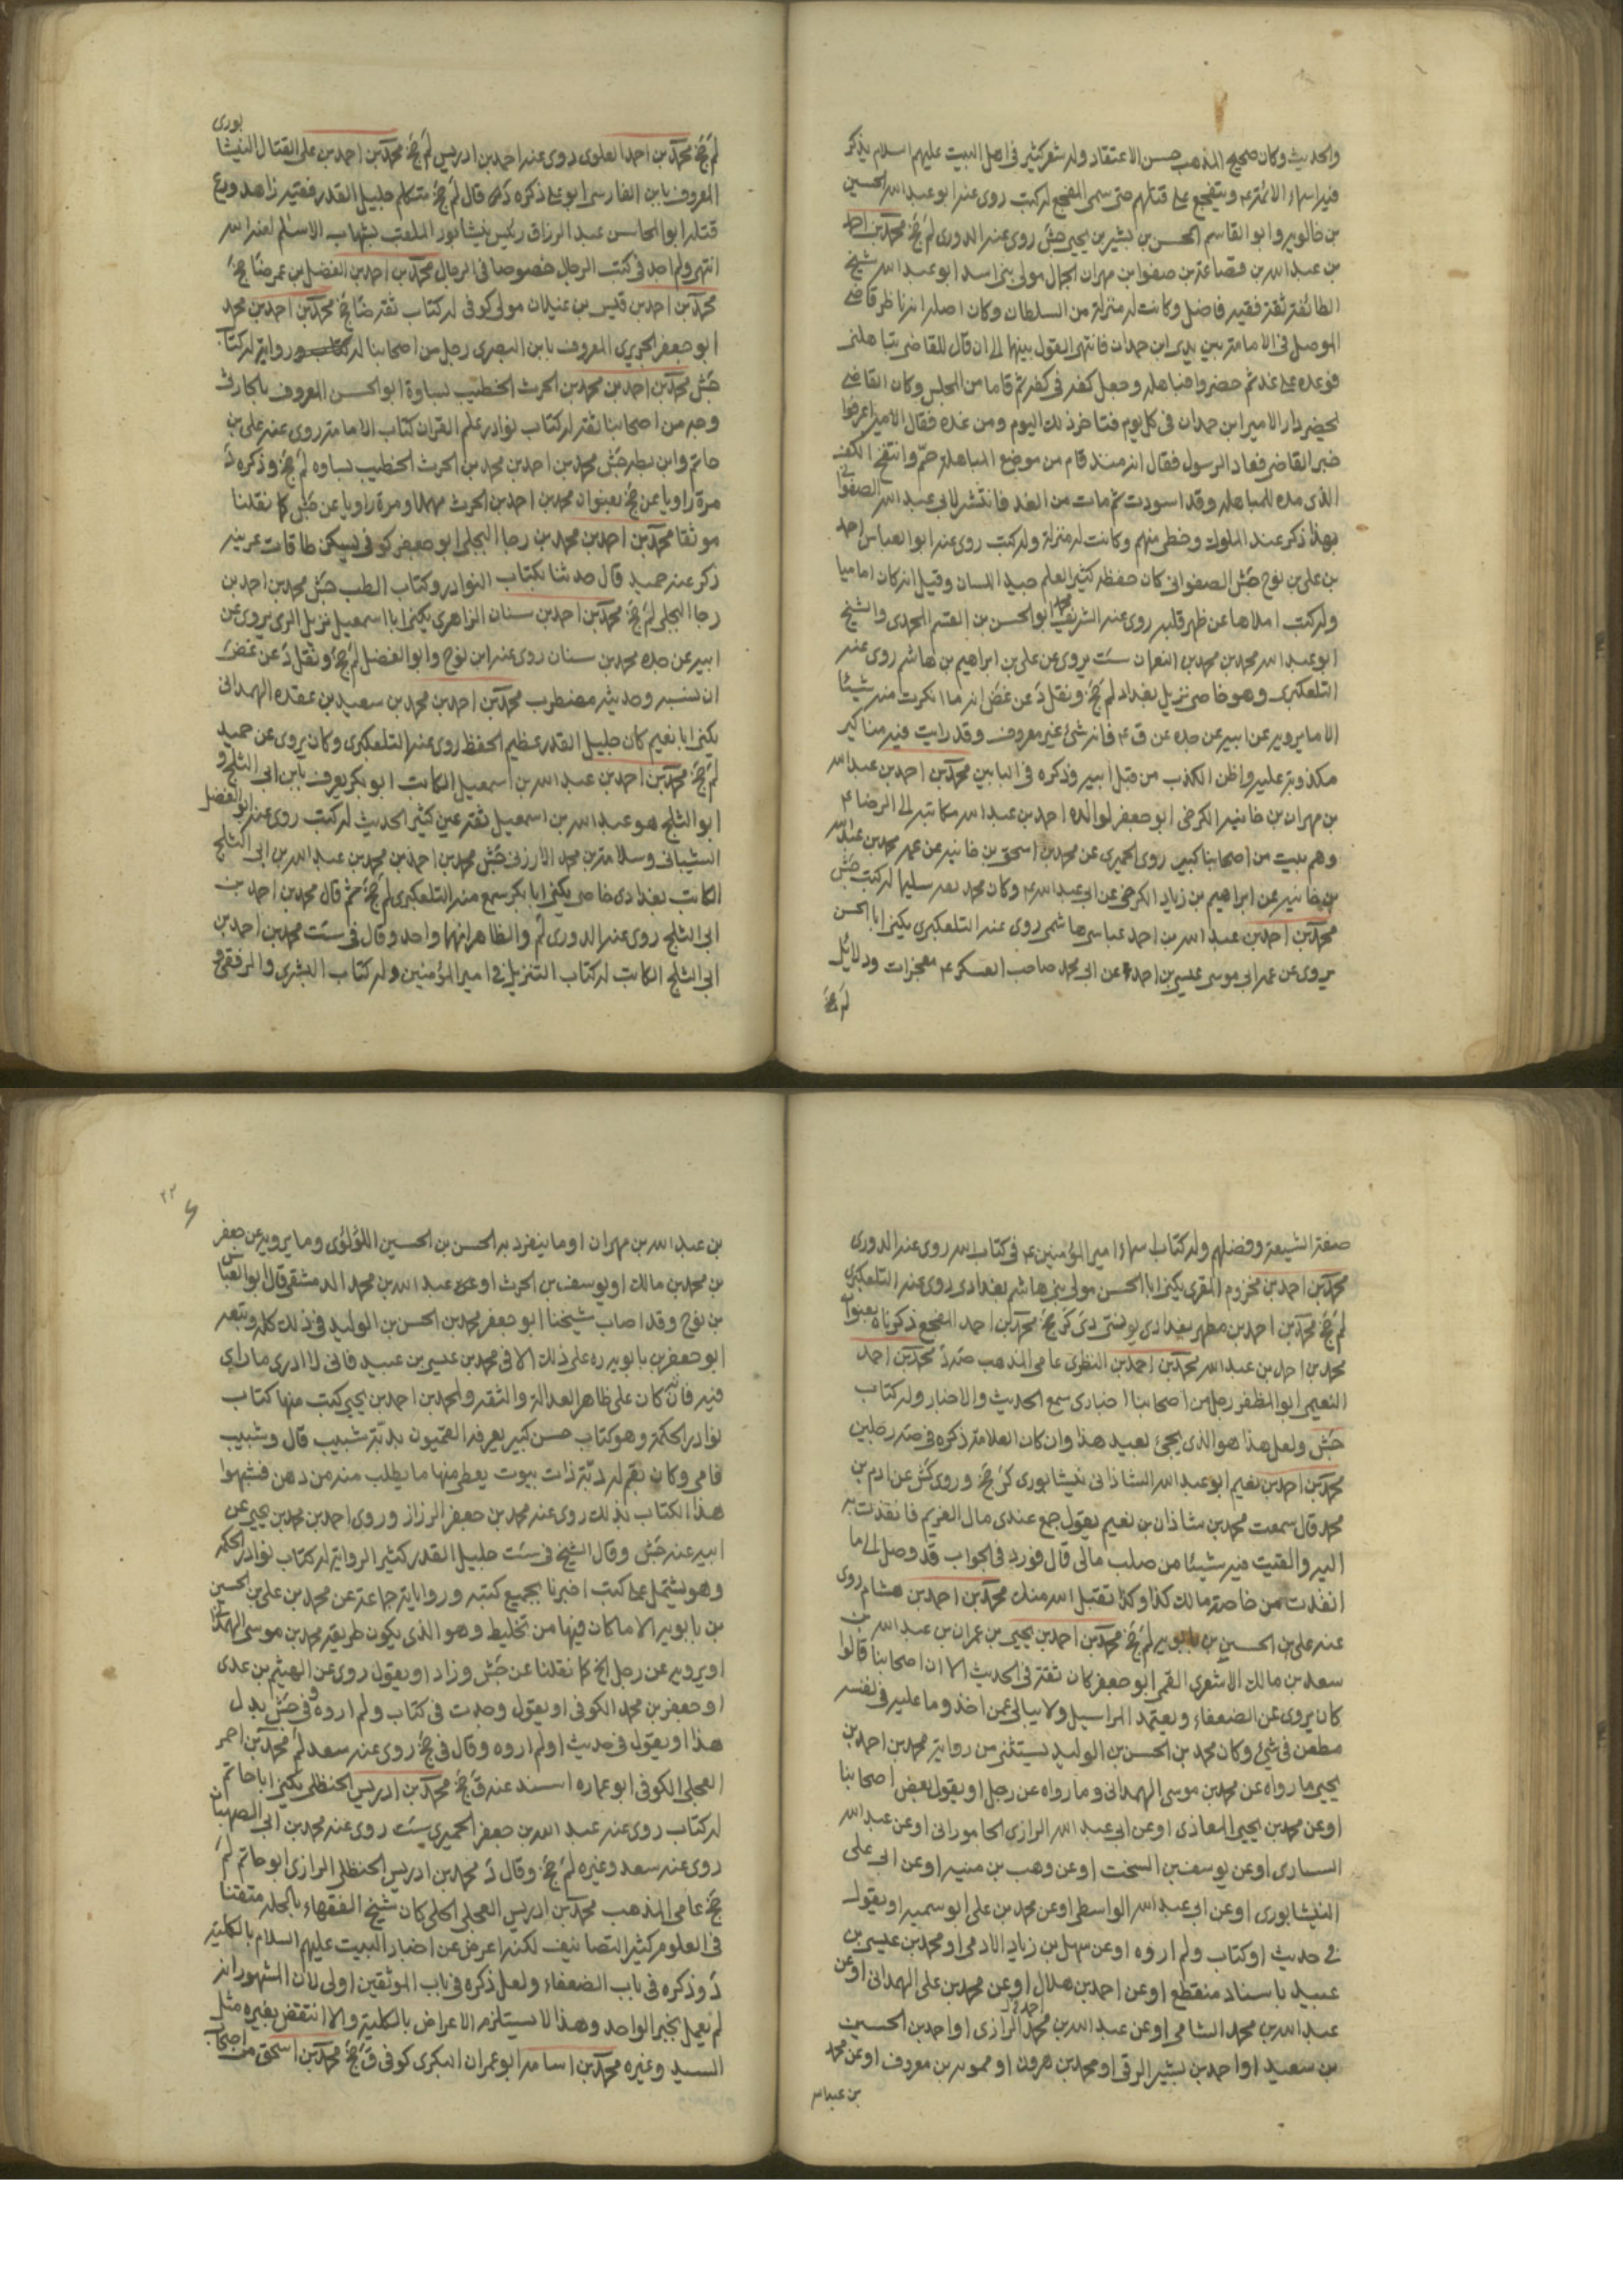 والحديث وكان صحيح المذهب حسن الاعتقاد وله شعر كثير في اهل البيت عليهم السلام يذكر
فيه اسماء الائمة ع ويتفجع على قتلهم حتى سمى المفجع له كتب روى عنه ابو عبد الله الحسين
بن خالويه وابو القاسم الحسن بن بشير بن يحيى جش روى عنه الدورى لم جخ محمد بن احمد
بن عبد الله بن قضاعة بن صفوان بن مهران الجمال مولى بنى اسد ابو عبد الله شيخ
الطائفة ثقة فقيه فاضل وكانت له منزلة من السلطان وكان اصلها انه ناظر قاضى
الموصل فى الامامة بين يدى ابن حمدان فانتهى القول بينهما الى ان قال للقاضى تباهلنى
فوعده على غد ثم حضروا فباهله وجعل كفه فى كفه ثم قاما من المجلس وكان القاضى
يحضر دار الامير ابن حمدان فى كل يوم فتاخر ذلك اليوم ومن غده فقال الامير اعرفوا
خبر القاضى فعاد الرسول فقال انه منذ قام من موضع المباهلة حم وانتفخ الكف
الذى مده للمباهلة وقد اسودت ثم مات من الغد فانتشر لابى عبد الله الصفوانى
بهذا ذكر عند الملوك وحظى منهم وكانت له منزلة وله كتب روى عنه ابو العباس احمد
بن على بن نوح جش الصفوانى كان حفظه كثير العلم جيد اللسان وقيل انه كان اميا
وله كتب املاها عن ظهر قلبه روى عنه الشريف محمد ابو الحسن بن القسم المحمدى والشيخ
ابو عبد الله محمد بن محمد بن النعمان ست يروى عن على بن ابراهيم بن هاشم روى عنه
التلعكبرى وهو خاصى نزيل بغداد لم جخ ونقل د عن غض انه ما انكرت منه شيئا
الا ما يرويه عن ابيه عن جده عن ق ع فانه شئ غير معروف وقد رايت فيه مناكير
مكذوبة عليه واظن الكذب من قبل ابيه وذكره فى البابين محمد بن احمد بن عبد الله
بن مهران بن خانبه الكرخى ابو جعفر لوالده احمد بن عبد الله مكاتبة الى الرضا ع
وهم بيت من اصحابنا كبير روى الحميرى عن محمد بن اسحق بن خانبه عن عمه محمد بن عبد الله
بن خانبه عن ابراهيم بن زياد الكرخى عن ابى عبد الله ع وكان محمد بعد سليما له كتب جش
محمد بن احمد بن عبد الله بن احمد عباسى هاشمى روى عنه التلعكبرى يكنى ابا الحسن
يروى عن عم ابى موسى عيسى بن احمد عن ابى محمد صاحب العسكر ع معجزات ودلائل
لم جخ
بورى
لم جخ محمد بن احمد العلوى روى عنه احمد بن ادريس لم جخ محمد بن احمد بن على الفتال النيشا
المعروف بابن الفارسى ابو على ذكره قال لم جخ متكلم جليل القدر فقيه زاهد ورع
قتله ابو المحاسن عبد الرزاق رئيس نيشابور الملقب بشهاب الاسلام لعنه الله
انتهى ولم اجد فى كتب الرجال خصوصا فى الرجال محمد بن احمد بن الفضل بن عمر ضا جخ
محمد بن احمد بن قيس بن غيلان مولى كوفى له كتاب ثقة ضا جخ محمد بن احمد بن محمد
ابو جعفر الجريرى المعروف بابن البصرى رجل من اصحابنا له رواية له كتاب
جش محمد بن احمد بن محمد بن الحرث الخطيب بساوة ابو الحسن المعروف بالحارثى
وجه من اصحابنا ثقة له كتاب نوادر علم القران كتاب الامامة روى عنه على بن
حاتم وابن بطه جش محمد بن احمد بن محمد بن الحرث الخطيب بساوه لم جخ وذكره د
مرة راويا عن جخ بعنوان محمد بن احمد بن الحرث مهملا ومرة راويا عن جش كما نقلنا
موثقا محمد بن احمد بن محمد بن رجا البجلى ابو جعفر كوفى يسكن طاقات عرينه
ذكر عنه حميد قال حدثنا بكتاب النوادر وكتاب الطب جش محمد بن احمد بن
رجا البجلى لم جخ محمد بن احمد بن سنان الزاهرى يكنى ابا اسمعيل نزيل الرى يروى عن
ابيه عن جده محمد بن سنان روى عنه ابن نوح وابو الفضل لم جخ ونقل د عن غض
ان نسبه وحديثه مضطرب محمد بن احمد بن محمد بن سعيد بن عقده الهمدانى
يكنى ابا نعيم كان جليل القدر عظيم الحفظ روى عنه التلعكبرى وكان يروى عن حميد
لم جخ محمد بن احمد بن عبد الله بن اسمعيل الكاتب ابو بكر يعرف بابن ابى الثلج و
ابو الثلج هو عبد الله بن اسمعيل ثقة عين كثير الحديث له كتب روى عنه ابو الفضل
الشيبانى وسلامة بن محمد الارزنى جش محمد بن احمد بن محمد بن عبد الله بن ابى الثلج
الكاتب بغدادى خاصى يكنى ابا بكر سمع منه التلعكبرى لم جخ ثم قال محمد بن احمد بن
ابى الثلج روى عنه الدورى لم والظاهر انهما واحد وقال فى ست محمد بن احمد بن
ابى الثلج الكاتب له كتاب التنزيل فى امير المؤمنين وله كتاب البشرى والزلفى فى
صفة الشيعة وفضلهم وله كتاب اسماء امير المؤمنين ع فى كتاب الله روى عنه الدورى
محمد بن احمد بن مخزوم المقرى يكنى ابا الحسن مولى بنى هاشم بغدادى روى عنه التلعكبرى
لم جخ محمد بن احمد بن مطهر بغدادى يونسى دى كر جخ محمد بن احمد المفجع ذكرناه بعنوان
محمد بن احمد بن عبد الله محمد بن احمد بن النطنزى عامى المذهب د محمد بن احمد
النعيمى ابو المظفر رجل من اصحابنا اخبارى سمع الحديث والاخبار وله كتاب
جش ولعل هذا هو الذى يجئ بعيد هذا وان كان العلامة ذكره فى صه رجلين
محمد بن احمد بن نعيم ابو عبد الله الشاذانى نيشابورى كر جخ وروى كش عن ادم بن
محمد قال سمعت محمد بن شاذان بن نعيم يقول جمع عندى مال الغريم فانفذت به
اليه والقيت فيه شيئا من صلب مالى قال فورد فى الجواب قد وصل الى ما
انفذت من خاصة مالك كذا وكذا تقبل الله منك محمد بن احمد بن هشام روى
عنه على بن الحسين بن بابويه لم جخ محمد بن احمد بن يحيى بن عمران بن عبد الله بن
سعد بن مالك الاشعرى القمى ابو جعفر كان ثقة فى الحديث الا ان اصحابنا قالوا
كان يروى عن الضعفاء ويعتمد المراسيل ولا يبالى عمن اخذ وما عليه فى نفسه
مطعن فى شئ وكان محمد بن الحسن بن الوليد يستثنى من رواية محمد بن احمد بن
يحيى ما رواه عن محمد بن موسى الهمدانى وما رواه عن رجل او يقول بعض اصحابنا
او عن محمد بن يحيى المعاذى او عن ابى عبد الله الرازى الجامورانى او عن عبد الله
السيارى او عن يوسف بن السخت او عن وهب بن منبه او عن ابى على
النيشابورى او عن ابى عبد الله الواسطى او عن محمد بن على ابو سمينه او يقول
فى حديث او كتاب ولم اروه او عن سهل بن زياد الادمى او محمد بن عيسى بن
عبيد باسناد منقطع او عن احمد بن هلال او عن محمد بن على الهمدانى او عن
عبد الله بن محمد الشامى او عن عبد الله بن محمد الرازى او احمد بن الحسين
بن سعيد او احمد بن بشير الرقى او محمد بن هرون او ممويه بن معروف او عن محمد
بن عبد الله
٢٢
بن عبد الله بن مهران او ما ينفرد به الحسن بن الحسين اللؤلؤى وما يرويه عن جعفر
بن محمد بن مالك او يوسف بن الحرث او عبد الله بن محمد الدمشقى قال ابو العباس
بن نوح وقد اصاب شيخنا ابو جعفر محمد بن الحسن بن الوليد فى ذلك كله وتبعه
ابو جعفر بن بابويه ره على ذلك الا فى محمد بن عيسى بن عبيد فانى لا ادرى ما رأيه
فيه فانه كان على ظاهر العدالة والثقة ولمحمد بن احمد بن يحيى كتب منها كتاب
نوادر الحكمة وهو كتاب حسن كبير يعرفه القميون بدبة شبيب قال وشبيب
فامى وكان بقم له دبة ذات بيوت يعطى منها ما يطلب منه من دهن فشبهوا
هذا الكتاب بذلك روى عنه محمد بن جعفر الرزاز وروى احمد بن محمد بن يحيى عن
ابيه عنه جش وقال الشيخ فى ست جليل القدر كثير الرواية له كتاب نوادر الحكمة
وهو يشتمل على كتب اخبرنا بجميع كتبه ورواياته جماعة عن محمد بن على بن الحسين
بن بابويه الا ما كان فيها من تخليط وهو الذى يكون طريقه محمد بن موسى الهمدانى
او يرويه عن رجل الخ كما نقلنا عن جش وزاد او يقول روى عن الهيثم بن عدى
او جعفر بن محمد الكوفى او يقول وجدت فى كتاب ولم اروه وفى جش بدل
هذا او يقول فى حديث او لم اروه وقال فى جخ روى عنه سعد لم محمد بن احمر
العجلى الكوفى ابو عماره اسند عنه ق جخ محمد بن ادريس الحنظلى يكنى ابا حاتم
له كتاب روى عنه عبد الله بن جعفر الحميرى ست روى عنه محمد بن ابى الصهبان
روى عنه سعد وغيره لم جخ وقال د محمد بن ادريس الحنظلى الرازى ابو حاتم لم
جخ عامى المذهب محمد بن ادريس العجلى الحلى كان شيخ الفقهاء بالحلة متقنا
فى العلوم كثير التصانيف لكنه اعرض عن اخبار اهل البيت عليهم السلام بالكلية
د وذكره فى باب الضعفاء ولعل ذكره فى باب الموثقين اولى لان المشهور انه
لم يعمل بخبر الواحد وهذا لا يستلزم الاعراض بالكلية والا انتقض بغيره مثل
السيد وغيره محمد بن اسامه ابو عمران البكرى كوفى ق جخ محمد بن اسحق من اصحاب